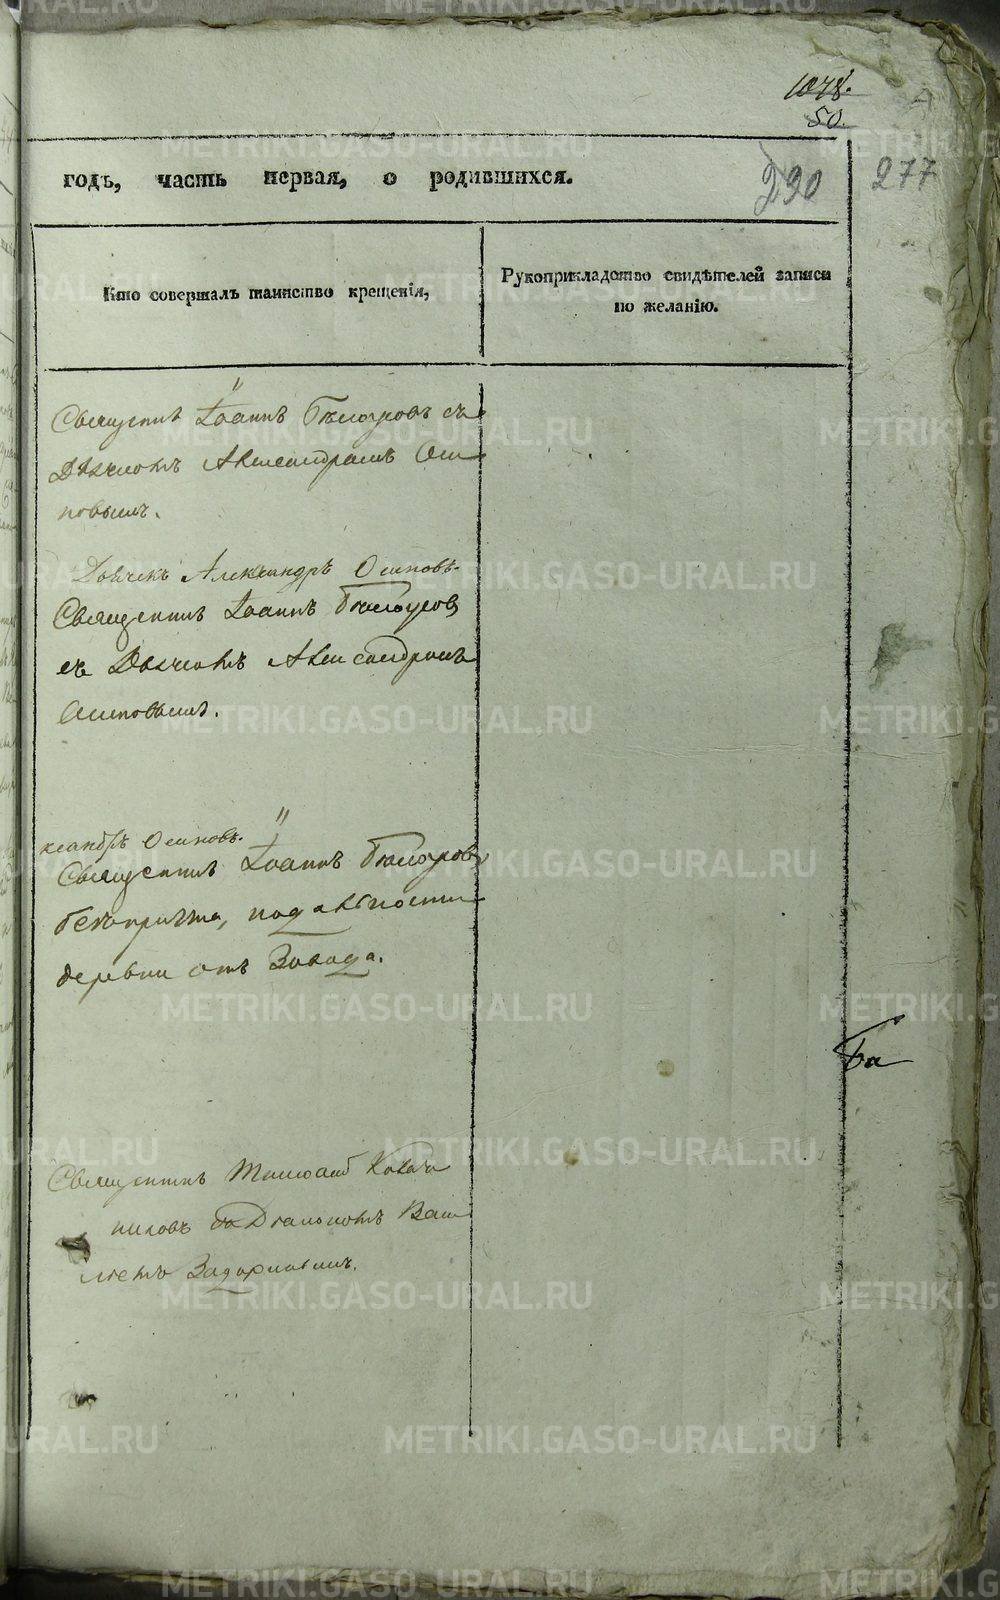 1048.
50.
годъ, часть первая, о родившихся.
290
277
Кто совершалъ таинство крещенія,
Рукоприкладство свидѣтелей записи
по желанію.
Священникъ Іоаннъ Бѣлоусовъ съ
Дьячкомъ Александромъ Оси
повымъ.
Дьячекъ Александръ Осиповъ.
Священникъ Іоаннъ Бѣлоусовъ
съ Дьячкомъ Александромъ
Осиповымъ.
ксандръ Осиповъ.
Священникъ Іоаннъ Бѣлоусовъ
безъ причта, по дальности
деревни отъ Завода.
Священникъ
Дьякономъ Васи
ліемъ Задоринымъ.
METRIKI.GASO-URAL.RU